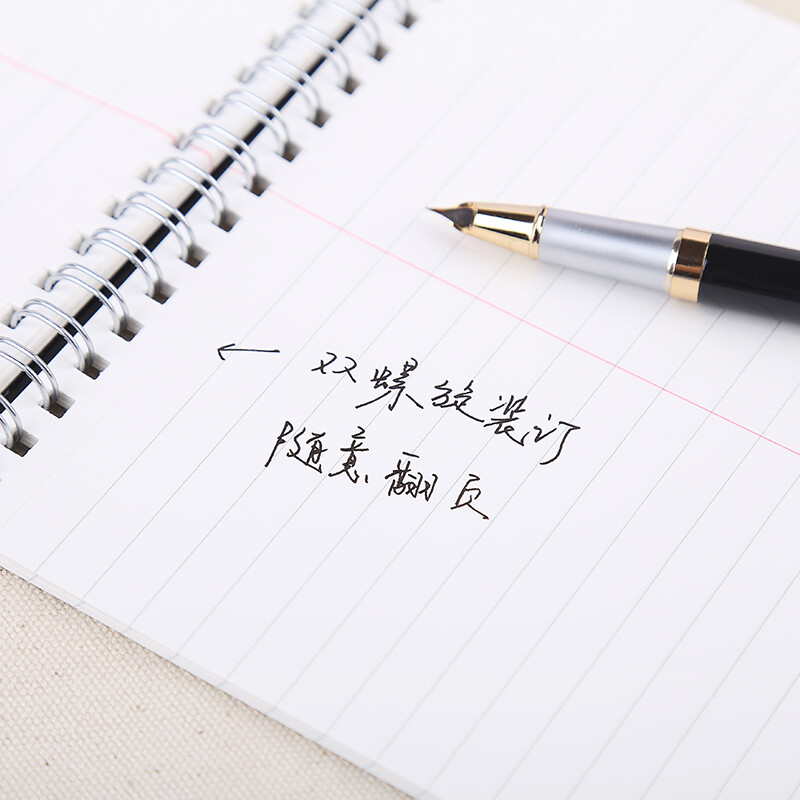 ← 双螺旋装订
随意翻页